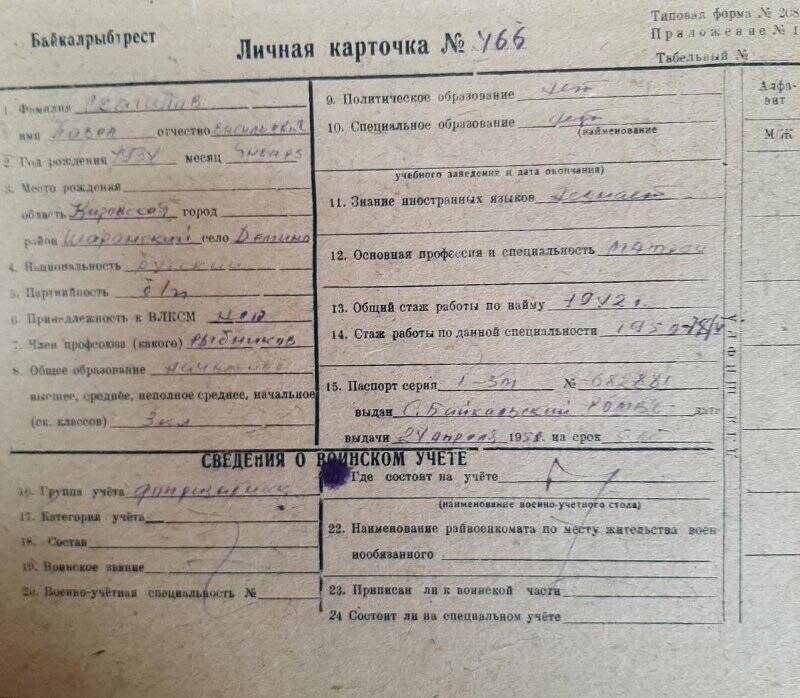 Типовая форма № 268
Приложение № 1
Байкалрыбтрест
Личная карточка № 466
Табельный №
1. Фамилия
имя Павел отчество Васильевич
2. Год рождения месяц Январь
3. Место рождения
область Кировской город
район Шарангский село
4. Национальность Русский
5. Партийность б/п
6. Принадлежность к ВЛКСМ нет
7. Член профсоюза (какого) Рыбников
8. Общее образование начальное
высшее, среднее, неполное среднее, начальное
(ск. классов) 3 кл
9. Политическое образование нет
10. Специальное образование нет
(наименование
учебного заведения и дата окончания)
11. Знание иностранных языков
12. Основная профессия и специальность матрос
13. Общий стаж работы по найму 1942 г.
14. Стаж работы по данной специальности
15. Паспорт серия № 682881
выдан С. Байкальский дата
выдачи 24 апреля 195 на срок
Алфавит
М/Ж
СВЕДЕНИЯ О ВОИНСКОМ УЧЕТЕ
16. Группа учёта
17. Категория учёта
18. Состав
19. Воинское звание
20. Военно-учётная специальность №
Где состоит на учёте
(наименование военно-учетного стола)
22. Наименование райвоенкомата по месту жительства воен-
нообязанного
23. Приписан ли к воинской части
24 Состоит ли на специальном учёте